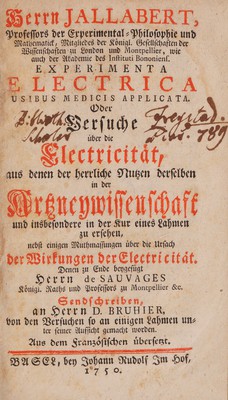 Herrn JALLABERT,
Professors der Experimental-Philosophie und
Mathematick, Mitgliedes der Königl. Gesellschaften der
Wissenschaften in Londen und Montpellier, wie
auch der Academie des Instituti Bononiens.
EXPERIMENTA
ELECTRICA
USIBUS MEDICIS APPLICATA.
Oder
Versuche
über die
Electricität,
aus denen der herrliche Nutzen derselben
in der
Artzneywissenschaft
und insbesondere in der Kur eines Lahmen
zu ersehen,
nebst einigen Muthmassungen über die Ursach
der Wirkungen der Electricität.
Denen zu Ende beygefügt
Herrn de SAUVAGES
Königl. Raths und Professors zu Montpellier &c.
Sendschreiben,
an Herrn D. BRUHIER,
von den Versuchen so an einigen Lahmen un-
ter seiner Aufsicht gemacht worden.
Aus dem Französischen übersetzt.
BASEL, bey Johann Rudolf Im Hof,
1750.